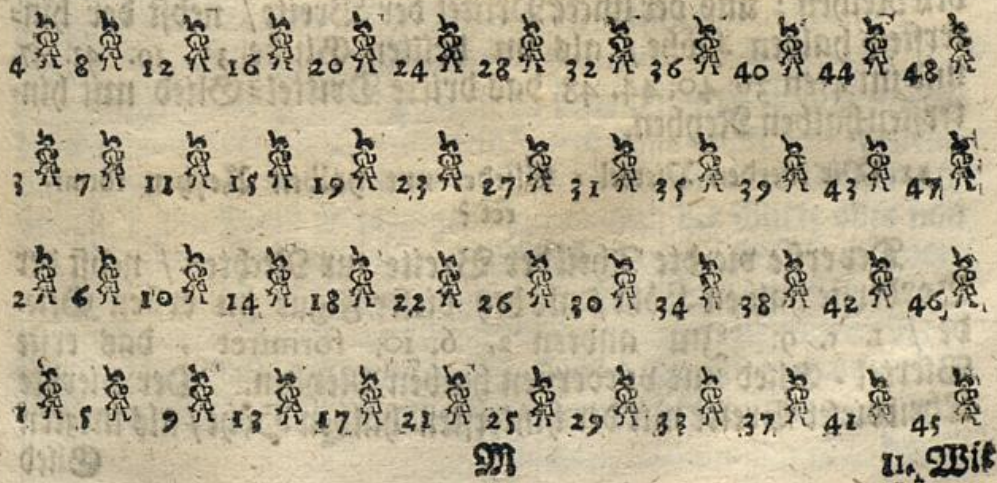 4 8 12 16 20 24 28 32 36 40 44 48
3 7 11 15 19 23 27 31 35 39 43 47
2 6 10 14 18 22 26 30 34 38 42 46
1 5 9 13 17 21 25 29 33 37 41 45
M II. Wik